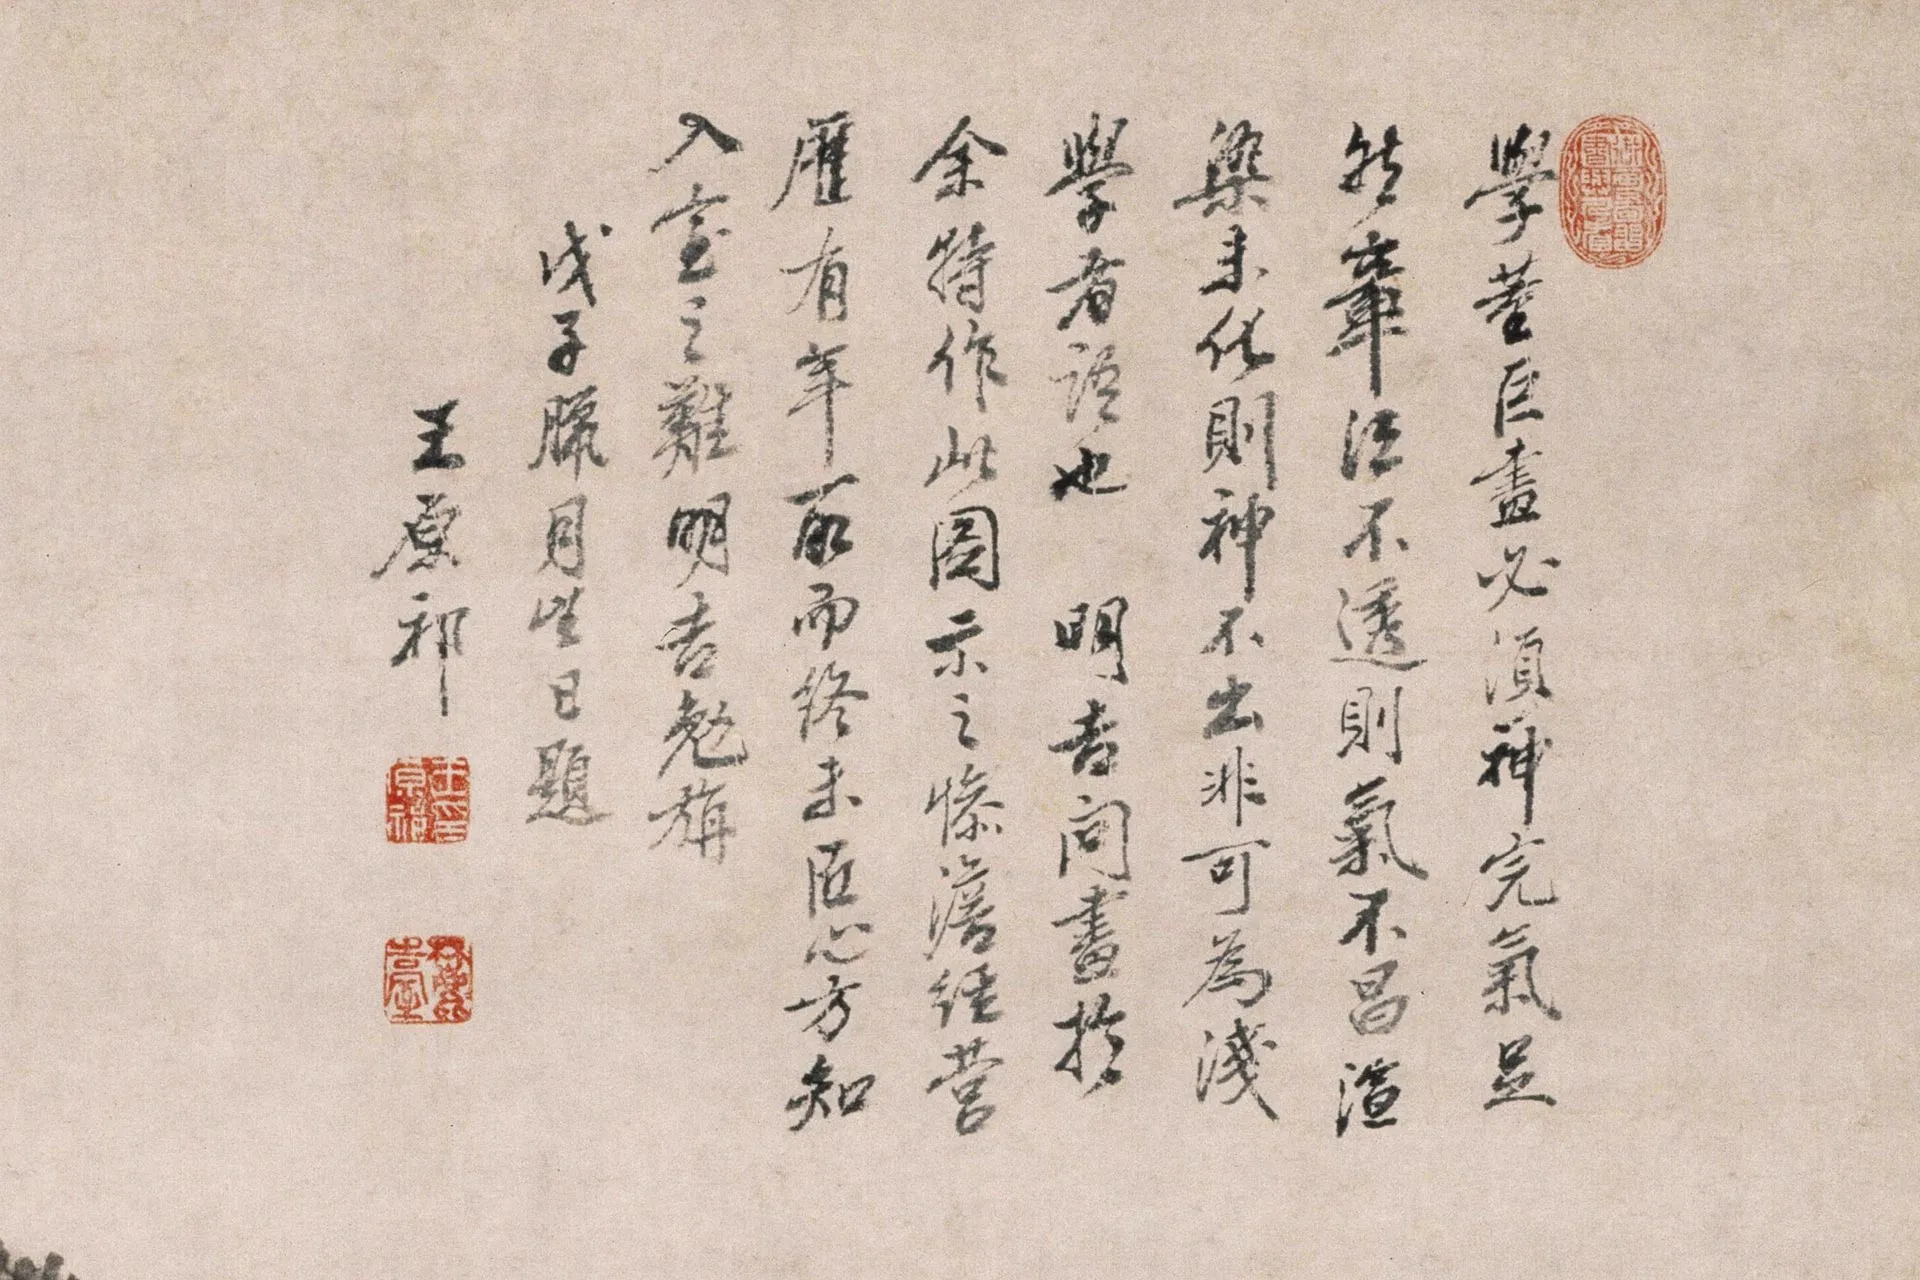 學董巨畫必須神完氣足
然章法不透則氣不昌渲
染未化則神不出非可為淺
學者語也 明吉問畫於
余特作此圖示之慘澹經營
歷有年所而終未匠心方知
入室之難明吉勉旃
戊子臘月望日題
王原祁
王原祁印
麓臺